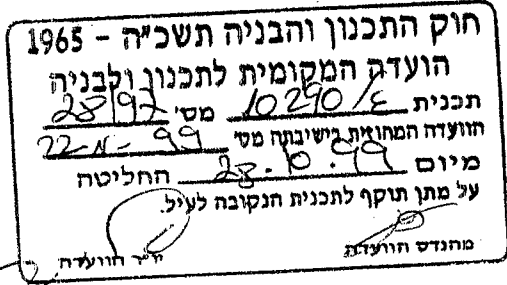 חוק התכנון והבניה תשכ"ה - 1965
הועדה המקומית לתכנון ולבניה
תכנית 10290/ מס' 28197
הוועדה המחוזית בישיבתה מס' 99
מיום 28.10.99 החליטה
על מתן תוקף לתכנית הנקובה לעיל.
מהנדס הוועדה יו"ר הוועדה